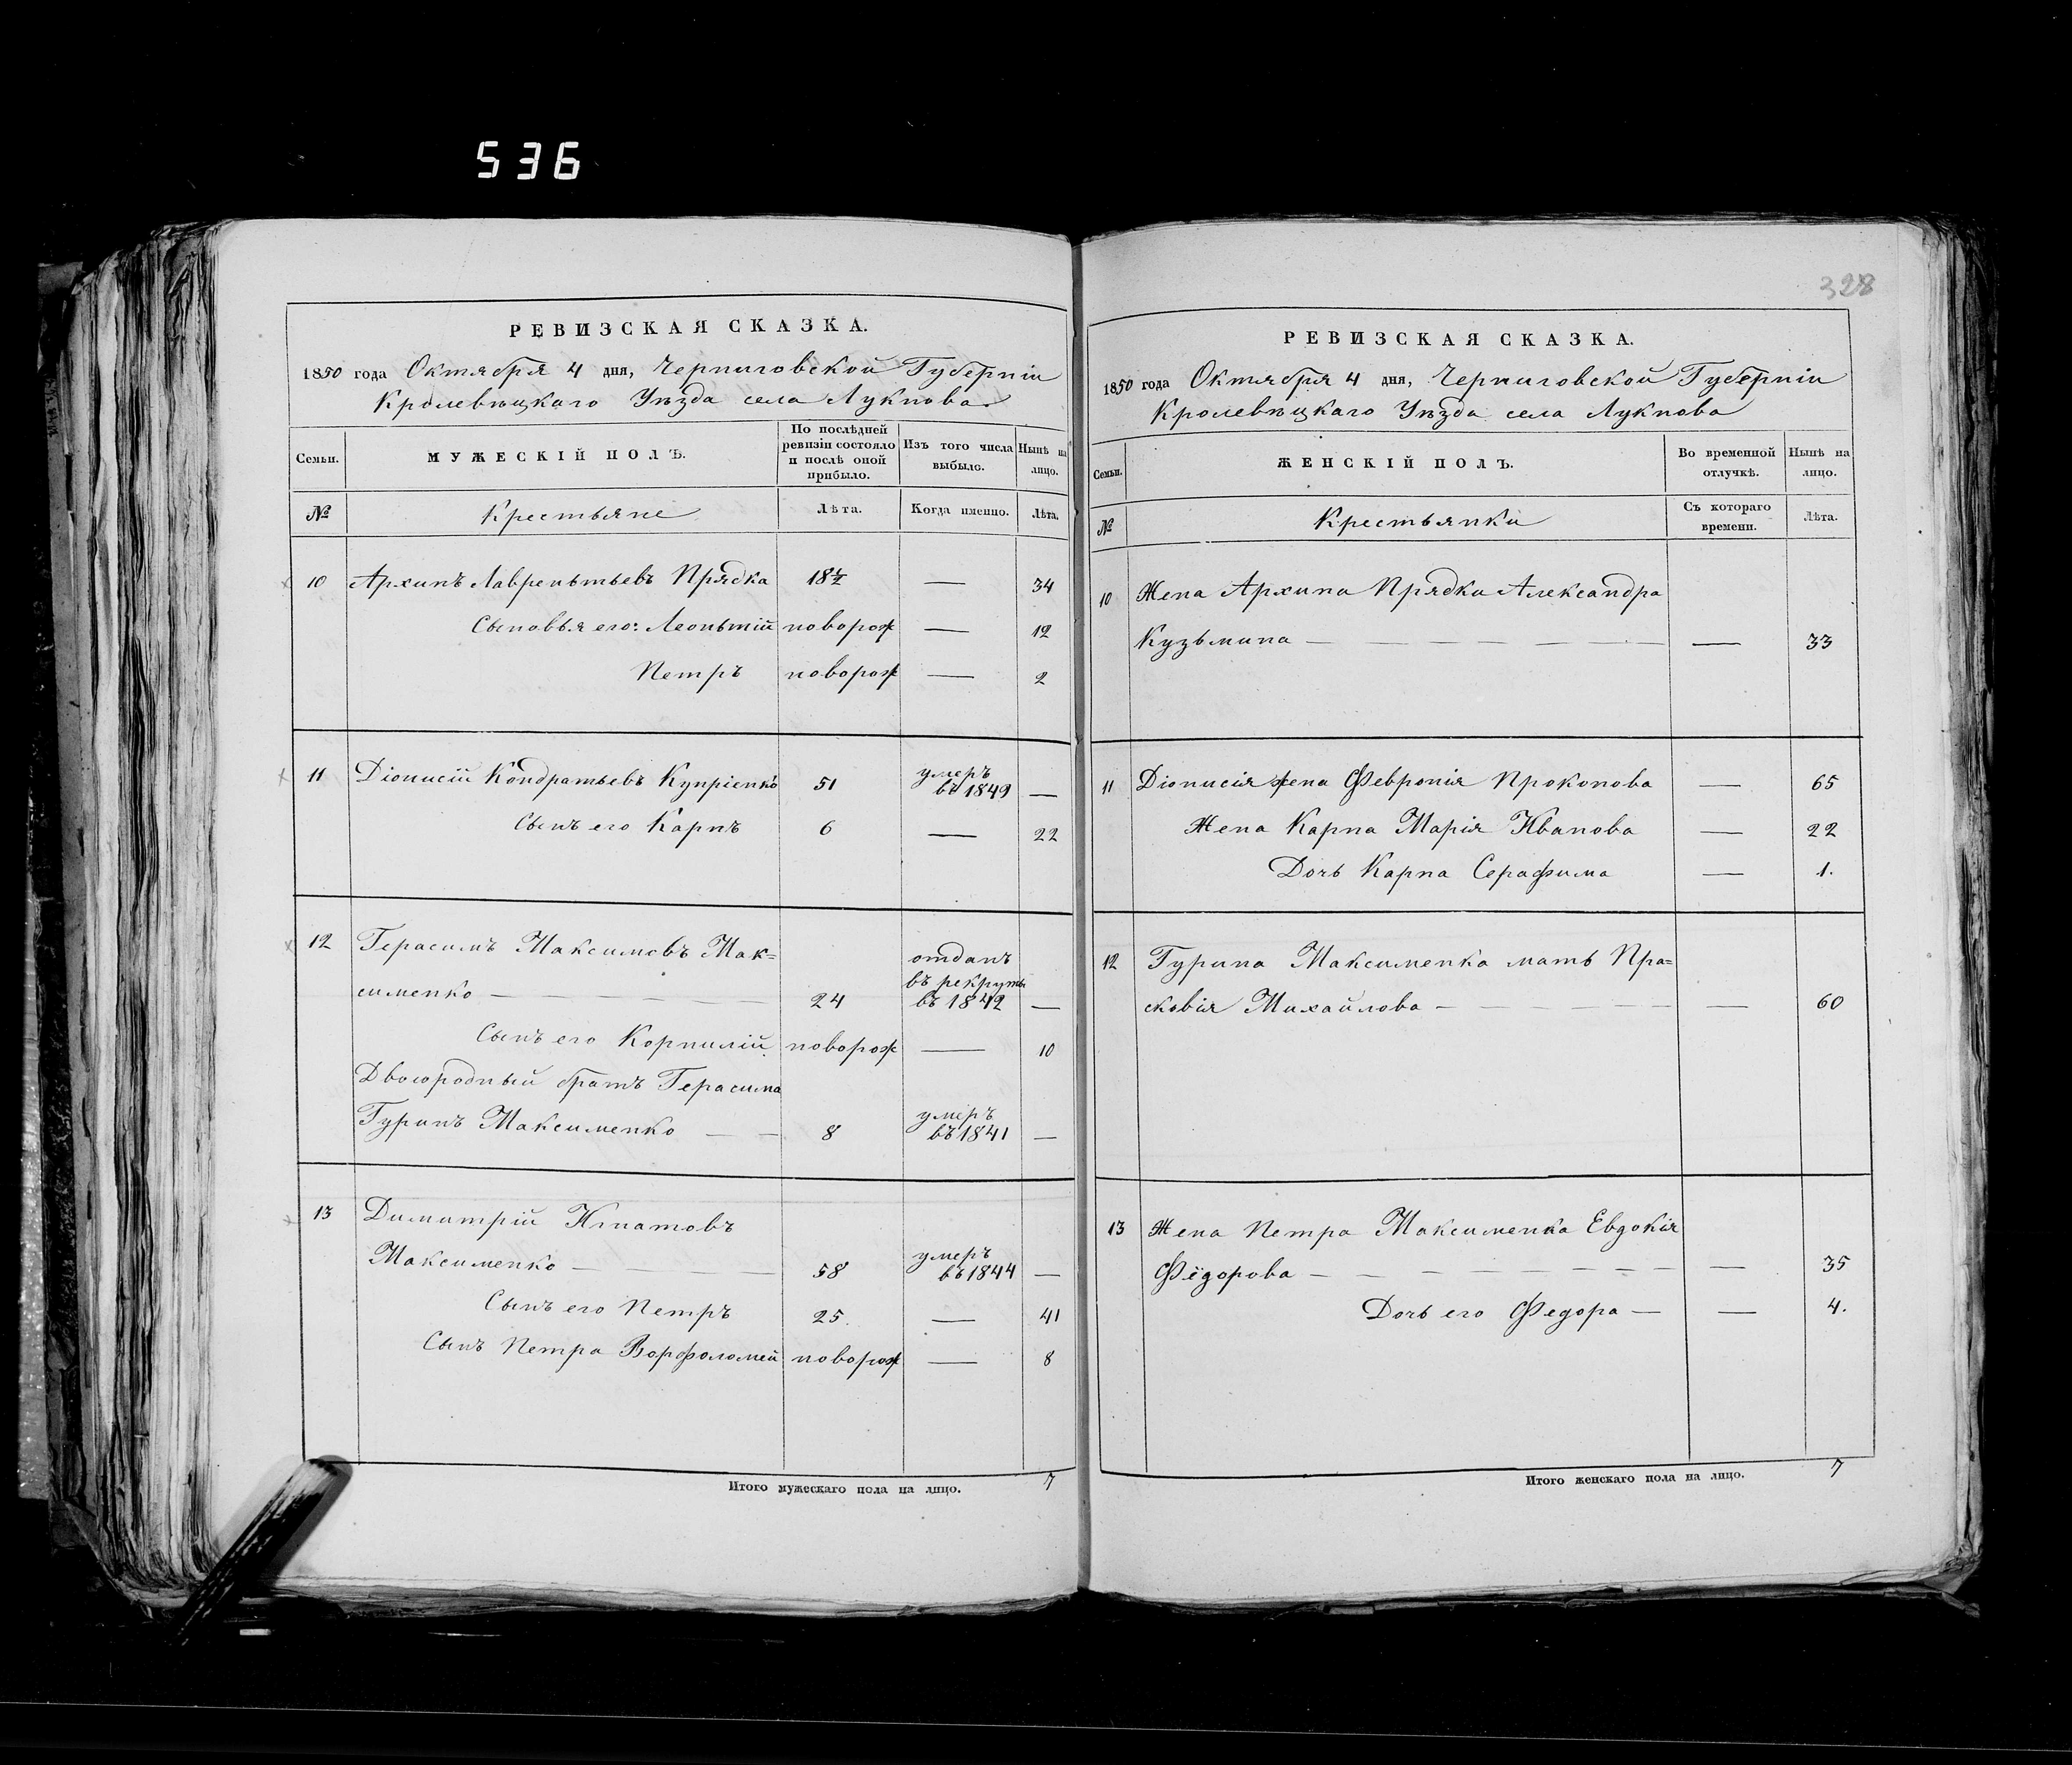 536
328
РЕВИЗСКАЯ СКАЗКА.
1850 года Октября 4 дня, Черниговской Губерніи
Кролевѣцкаго Уѣзда села Лукнова
Семьи.
МУЖЕСКІЙ ПОЛЪ.
По послѣдней ревизіи состояло и послѣ оной прибыло.
Изъ того числа выбыло.
Нынѣ на лицо.
№
Крестьяне
Лѣта.
Когда именно.
Лѣта.
10 Архипъ Лаврентьевъ Прядка 18½ — 34
Сыновья его: Леонтій новорож — 12
Петръ новорож — 2
11 Діонисій Кондратьевъ Купріенко 51 умеръ въ 1849 —
Сынъ его Карпъ 6 — 22
12 Герасимъ Максимовъ Мак=
сименко — 24 отданъ въ рекруты въ 1842 —
Сынъ его Корнилій новорож — 10
Двоюродный братъ Герасима
Гуринъ Максименко — 8 умеръ въ 1841 —
13 Димитрій Игнатовъ
Максименко — 58 умеръ въ 1844 —
Сынъ его Петръ 25. — 41
Сынъ Петра Варфоломей новорож — 8
Итого мужескаго пола на лицо. 7
РЕВИЗСКАЯ СКАЗКА.
1850 года Октября 4 дня, Черниговской Губерніи
Кролевѣцкаго Уѣзда села Лукнова
Семьи.
ЖЕНСКІЙ ПОЛЪ.
Во временной отлучкѣ.
Нынѣ на лицо.
№
Крестьянки
Съ котораго времени.
Лѣта.
10 Жена Архипа Прядки Александра
Кузьмина — — 33
11 Діонисія жена Февронія Прокопова — 65
Жена Карпа Марія Иванова — 22
Дочь Карпа Серафима — 1.
12 Гурина Максименка мать Пра=
сковія Михайлова — — 60
13 Жена Петра Максименка Евдокія
Фёдорова — — 35
Дочь его Федора — — 4.
Итого женскаго пола на лицо. 7